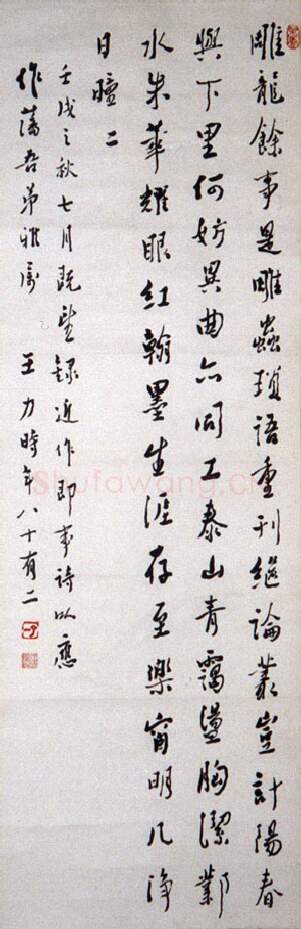 雕龍餘事是雕蟲瑣語重刊繼論叢豈計陽春
與下里何妨異曲亦同工泰山青靄盪胸潔鄴
水朱華耀眼紅翰墨生涯存至樂窗明几淨
日曈二
壬戌之秋七月既望録近作即事詩以應
作藩吾弟雅属 王力時年八十有二
shufawang.cn